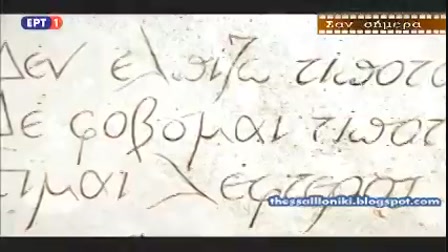 ΕΡΤ 1
Σαν σήμερα
Δεν ελπίζω τίποτα
Δε φοβούμαι τίποτ
ιμαι λέφτερος
thessallloniki.blogspot.com